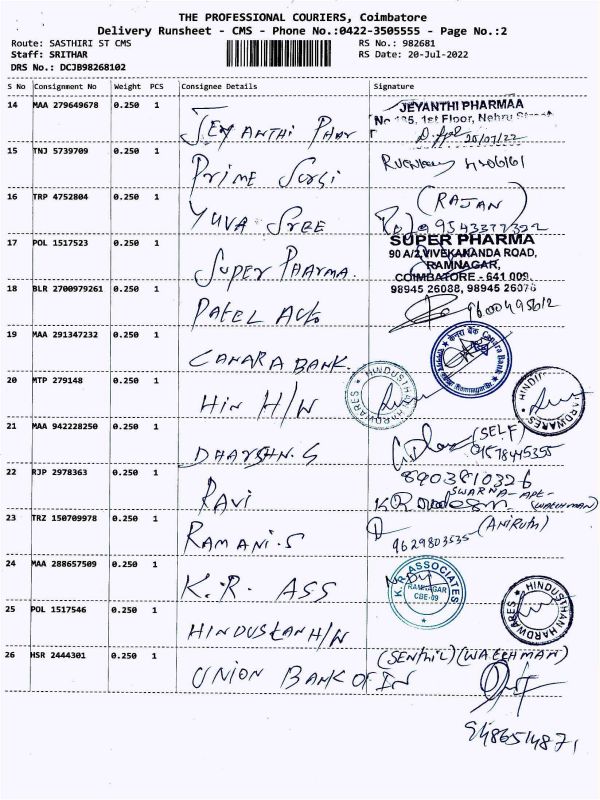 THE PROFESSIONAL COURIERS, Coimbatore
Delivery Runsheet - CMS - Phone No.:0422-3505555 - Page No.:2
Route: SASTHIRI ST CMS
RS No.: 982681
Staff: SRITHAR
RS Date: 20-Jul-2022
DRS No.: DCJB98268102
S No Consignment No Weight PCS Consignee Details Signature
14 MAA 279649678 0.250 1 JEYANTHI PHAR
JEYANTHI PHARMAA
1st Floor, Nehru
20/07/22
15 TNJ 5739709 0.250 1 Prime Sorgi
16 TRP 4752804 0.250 1 YUVA SREE
(RAJAN)
17 POL 1517523 0.250 1 SUPER PHARMA.
SUPER PHARMA
90 A/2,VIVEKANANDA ROAD,
RAMNAGAR,
COIMBATORE - 641 009.
98945 26088, 98945 26076
18 BLR 2700979261 0.250 1 PATEL
9600495612
19 MAA 291347232 0.250 1 CANARA BANK.
केनरा बैंक Canara Bank
20 MTP 279148 0.250 1 HIN H/W
HINDUSTHAN HARDWARES
HARDWARES
21 MAA 942228250 0.250 1 DHARSHN.G
(SELF)
22 RJP 2978363 0.250 1 RAVI
8903810326
SWARNA-APT-
(WATCHMAN)
23 TRZ 150709978 0.250 1 RAMANI.S
(ANIRUTH)
9629803535
24 MAA 288657509 0.250 1 K.R. ASS
K.R. ASSOCIATES
RAMNAGAR
CBE-09
25 POL 1517546 0.250 1 HINDUSTAN H/W
HINDUSTHAN HARDWARES
26 HSR 2444301 0.250 1 UNION BANK OF IN
(SENTHIL) (WATCHMAN)
9486514871